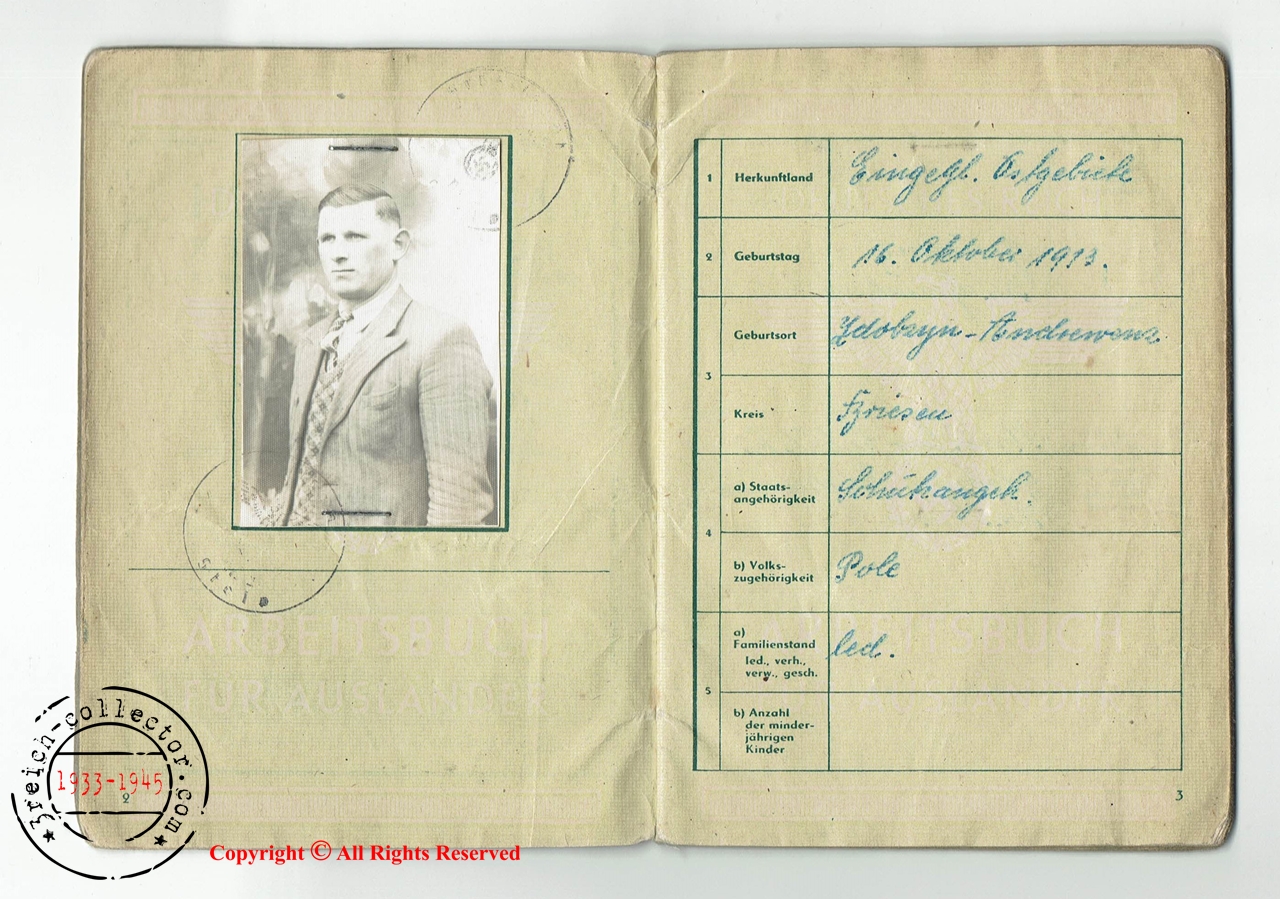 ARBEITSBUCH
FÜR AUSLÄNDER
Stein
2
1 Herkunftland Eingegl. Ostgebiete
2 Geburtstag 16. Oktober 1913.
3 Geburtsort
Kreis
4 a) Staats-
angehörigkeit Schutzangeh.
b) Volks-
zugehörigkeit Pole
5 a)
Familienstand led.
led., verh.,
verw., gesch.
b) Anzahl
der minder-
jährigen
Kinder
ARBEITSBUCH
AUSLÄNDER
3
3reich-collector.com
1933-1945
Copyright © All Rights Reserved